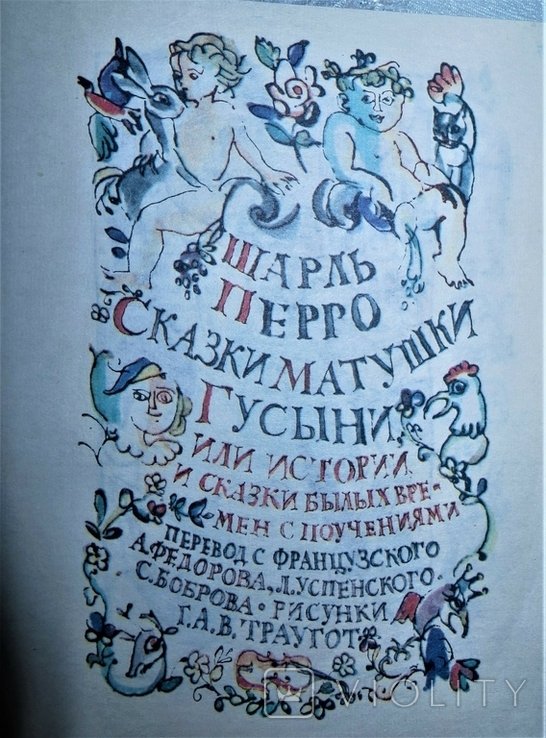 ШАРЛЬ
ПЕРРО
СКАЗКИ МАТУШКИ
ГУСЫНИ,
ИЛИ ИСТОРИИ
И СКАЗКИ БЫЛЫХ ВРЕ-
МЕН С ПОУЧЕНИЯМИ
ПЕРЕВОД С ФРАНЦУЗСКОГО
А.ФЕДОРОВА, Л.УСПЕНСКОГО.
С.БОБРОВА • РИСУНКИ
Г.А.В. ТРАУГОТ
VIOLITY